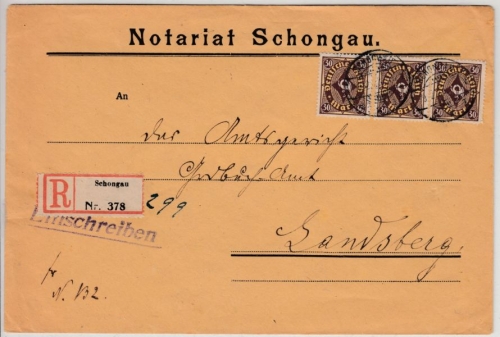 Notariat Schongau.
30 30 30 30 30 30
Deutsches Reich Deutsches Reich Deutsches Reich
Mark Mark Mark
An
das Amtsgericht
Grdbuch-Amt
R Schongau
Nr. 378
299
Einschreiben
Landsberg.
N. 132.